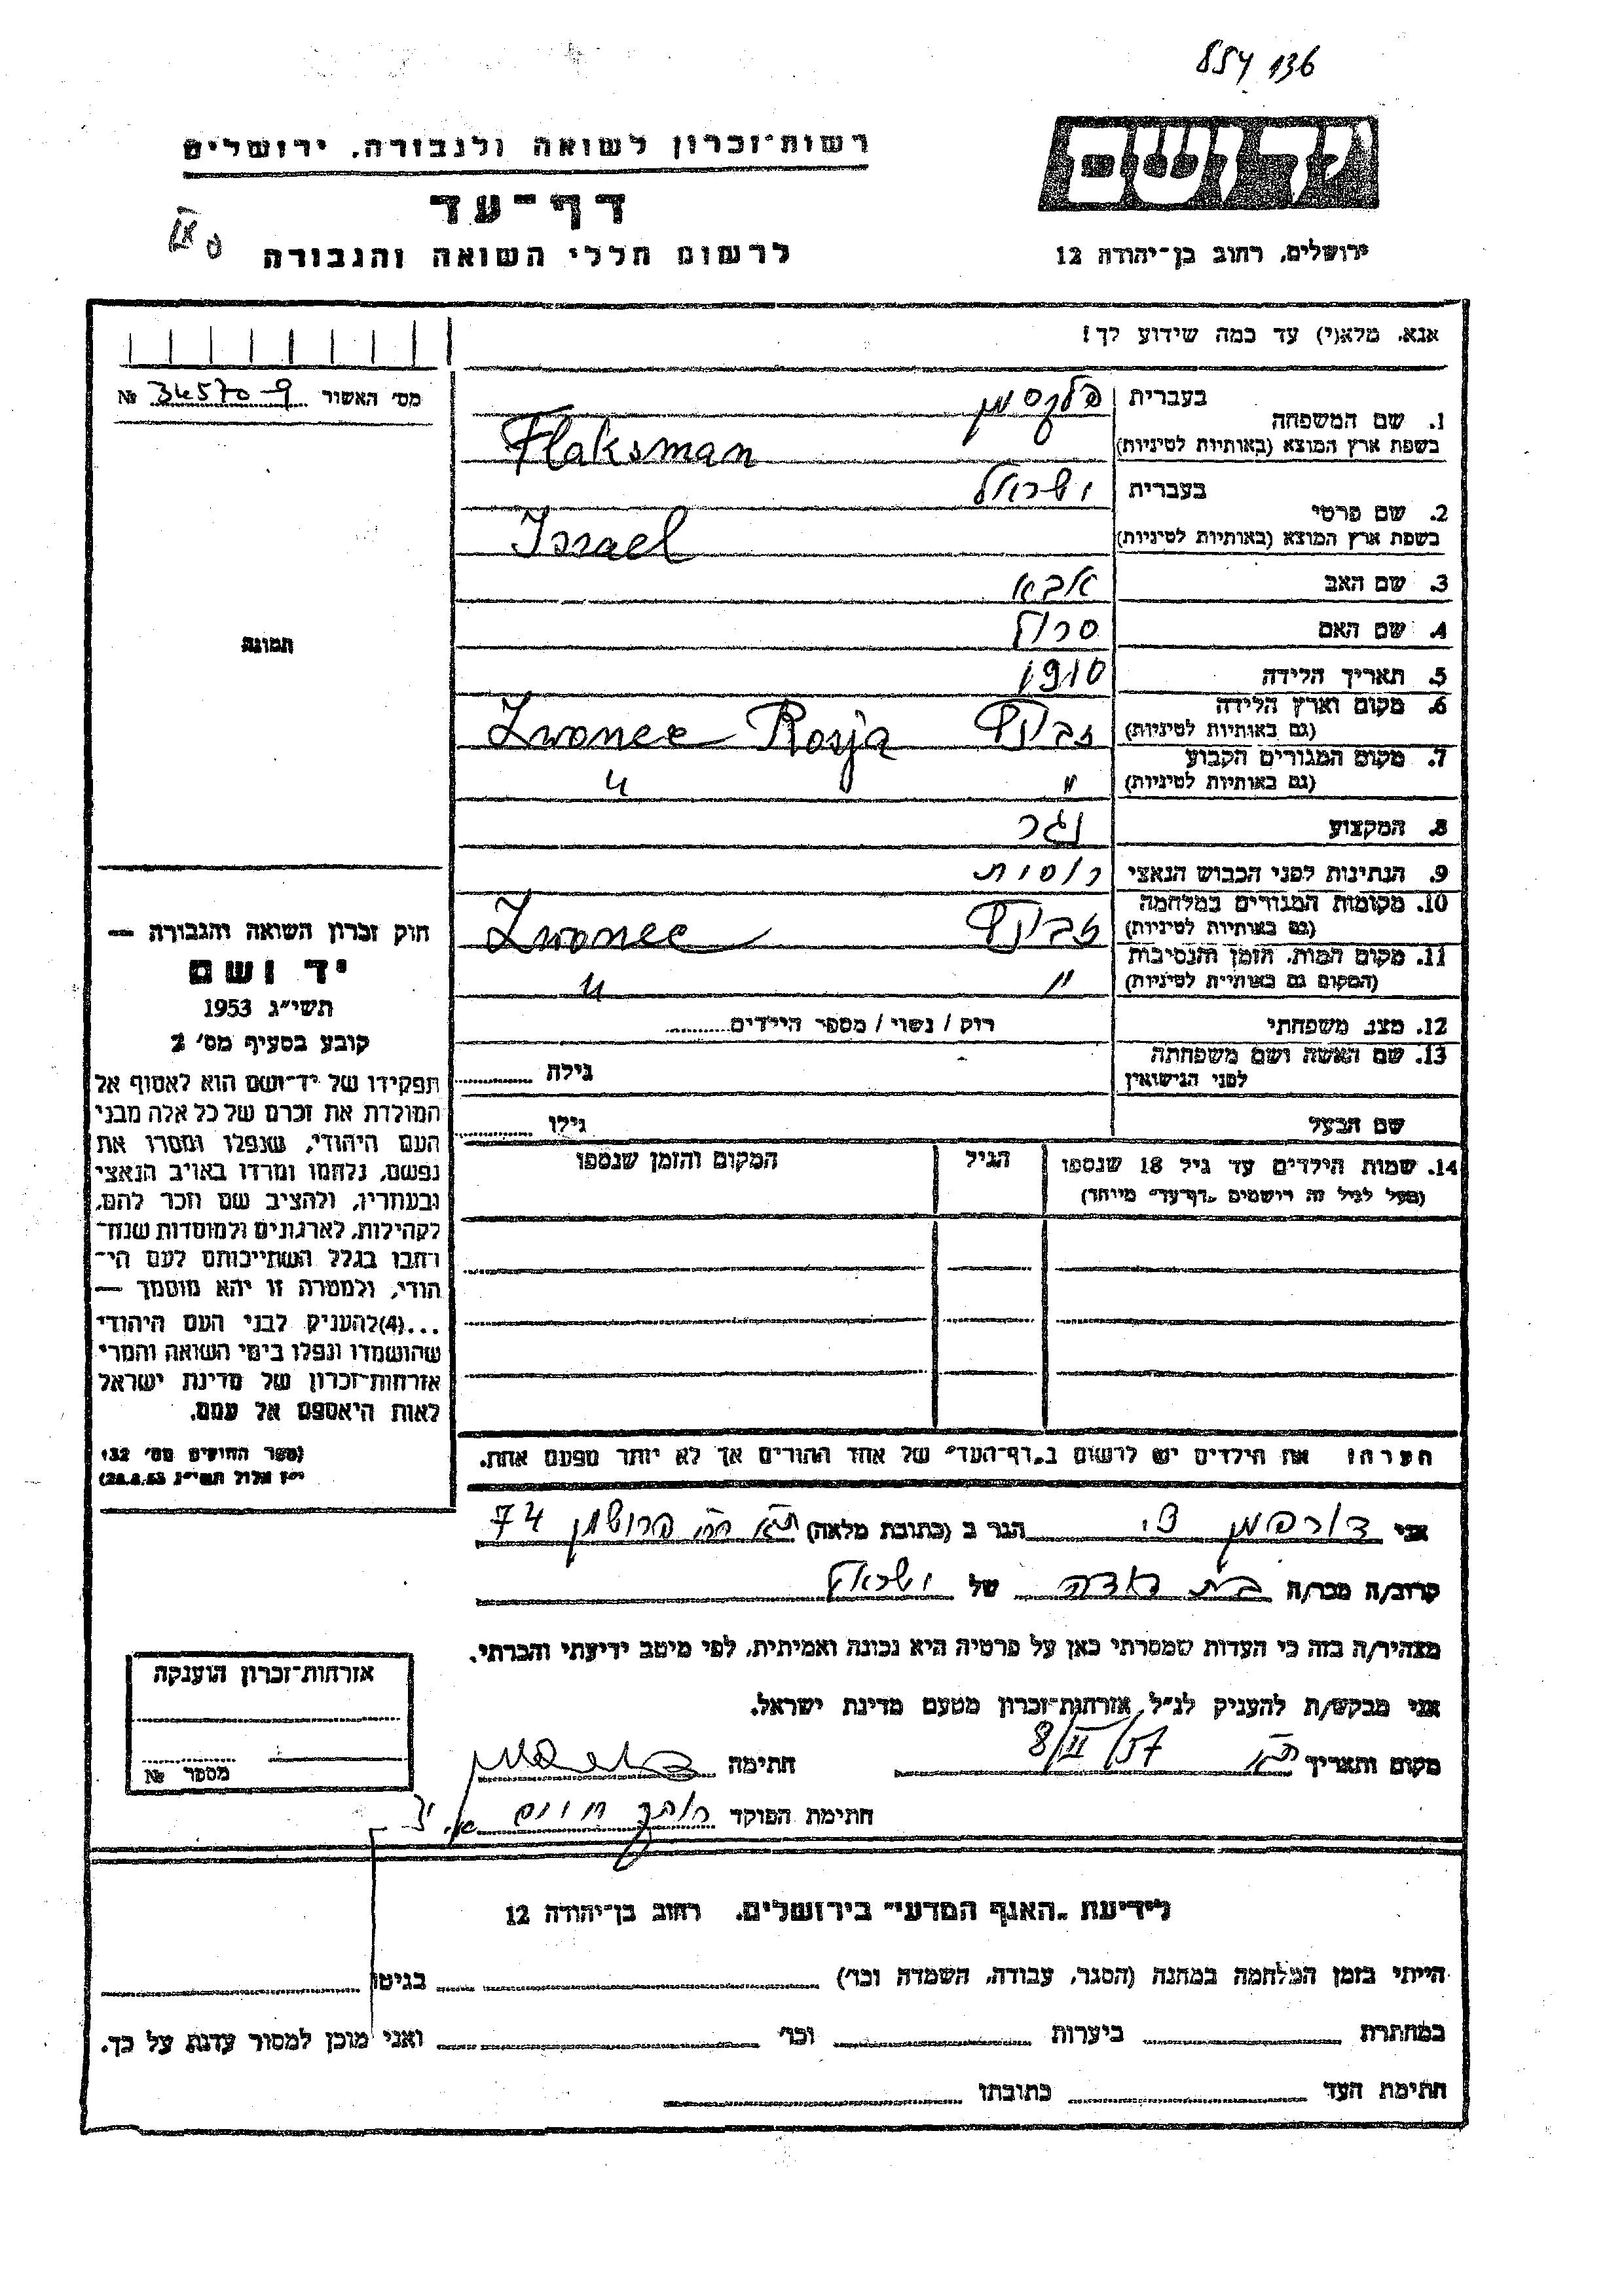 554 136
רשות־זכרון לשואה ולגבורה, ירושלים
דף־עד
לרשום חללי השואה והגבורה
ירושלים, רחוב בן־יהודה 12
אנא, מלא(י) עד כמה שידוע לך!
מס׳ האשור № 34570-9
1. שם המשפחה בעברית פלקסמן
בשפת ארץ המוצא (באותיות לטיניות) Flaksman
2. שם פרטי בעברית ישראל
בשפת ארץ המוצא (באותיות לטיניות) Israel
3. שם האב אבא
4. שם האם
5. תאריך הלידה 1910
6. מקום וארץ הלידה (גם באותיות לטיניות) Zwonec Rosja
7. מקום המגורים הקבוע (גם באותיות לטיניות) " "
8. המקצוע נגר
9. הנתינות לפני הכבוש הנאצי רוסית
10. מקומות המגורים במלחמה (גם באותיות לטיניות) Zwonec
11. מקום המות, הזמן והנסיבות (המקום גם באותיות לטיניות) " "
12. מצב משפחתי רוק / נשוי / מספר הילדים
13. שם האשה ושם משפחתה לפני הנישואין גילה
שם הבעל גילו
14. שמות הילדים עד גיל 18 שנספו הגיל המקום והזמן שנספו
(מעל לגיל זה רושמים „דף־עד״ מיוחד)
תמונה
חוק זכרון השואה והגבורה —
יד ושם
תשי״ג 1953
קובע בסעיף מס׳ 2
תפקידו של יד־ושם הוא לאסוף אל
המולדת את זכרם של כל אלה מבני
העם היהודי, שנפלו ומסרו את
נפשם, נלחמו ומרדו באויב הנאצי
ובעוזריו, ולהציב שם וזכר להם,
לקהילות, לארגונים ולמוסדות שנח־
רבו בגלל השתייכותם לעם הי־
הודי, ולמטרה זו יהא מוסמך —
...(4)להעניק לבני העם היהודי
שהושמדו ונפלו בימי השואה והמרי
אזרחות־זכרון של מדינת ישראל
לאות היאספם אל עמם.
(ספר החוקים מס׳ 132
י״ז אלול תשי״ג 28.8.53)
הערה: את הילדים יש לרשום ב„דף־העד״ של אחד ההורים אך לא יותר מפעם אחת.
אני דורפמן הגר ב (כתובת מלאה) 74
קרוב/ה מכר/ה בת דודה של ישראל
מצהיר/ה בזה כי העדות שמסרתי כאן על פרטיה היא נכונה ואמיתית, לפי מיטב ידיעתי והכרתי.
אני מבקש/ת להעניק לנ״ל אזרחות־זכרון מטעם מדינת ישראל.
מקום ותאריך ת״א 8/II/57 חתימה
חתימת הפוקד
אזרחות־זכרון הוענקה
מספר №
לידיעת „האגף המדעי״ בירושלים, רחוב בן־יהודה 12
הייתי בזמן המלחמה במחנה (הסגר, עבודה, השמדה וכו׳) בגיטו
במחתרת ביערות וכו׳ ואני מוכן למסור עדות על כך.
חתימת העד כתובתו